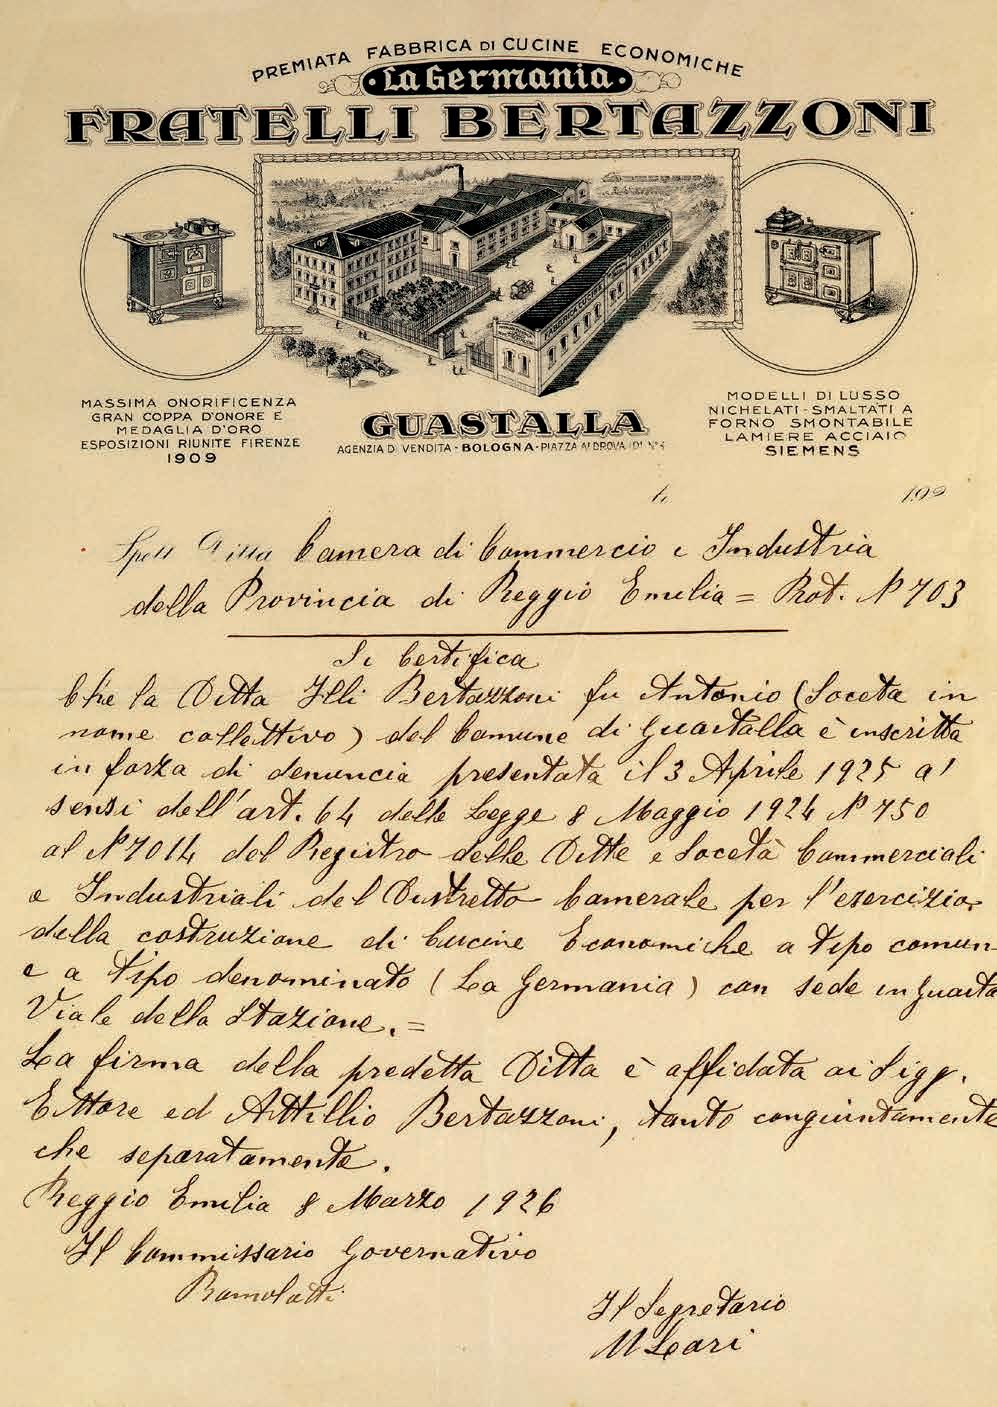 PREMIATA FABBRICA DI CUCINE ECONOMICHE
La Germania
FRATELLI BERTAZZONI
MASSIMA ONORIFICENZA
GRAN COPPA D'ONORE E
MEDAGLIA D'ORO
ESPOSIZIONI RIUNITE FIRENZE
1909
GUASTALLA
AGENZIA DI VENDITA - BOLOGNA - PIAZZA
MODELLI DI LUSSO
NICHELATI - SMALTATI A
FORNO SMONTABILE
LAMIERE ACCIAIO
SIEMENS
Spett Ditta Camera di Commercio e Industria
della Provincia di Reggio Emilia = Prot. N° 703
Si Certifica
Che la Ditta Flli Bertazzoni fu Antonio (Soceta in
nome collettivo) del Comune di Guastalla è inscritta
in forza di denuncia presentata il 3 Aprile 1925 a'
sensi dell'art. 64 delle Legge 8 Maggio 1924 N° 750
al N° 7014 del Registro delle Ditte e Socetà Commerciali
e Industriali del Distretto Camerale per l'esercizio
della costruzione di Cucine Economiche a tipo comun
e a tipo denominato (La Germania) con sede in Guasta
Viale della Stazione. =
La firma della predetta Ditta è affidata ai Sigg.
Ettore ed Attillio Bertazzoni, tanto congiuntamente
che separatamente.
Reggio Emilia 8 Marzo 1926
Il Commissario Governativo
Il Segretario